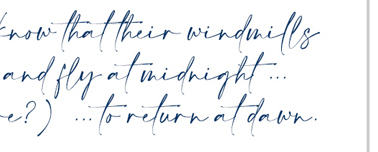 know that their windmills
and fly at midnight ...
e?) ...to return at dawn.